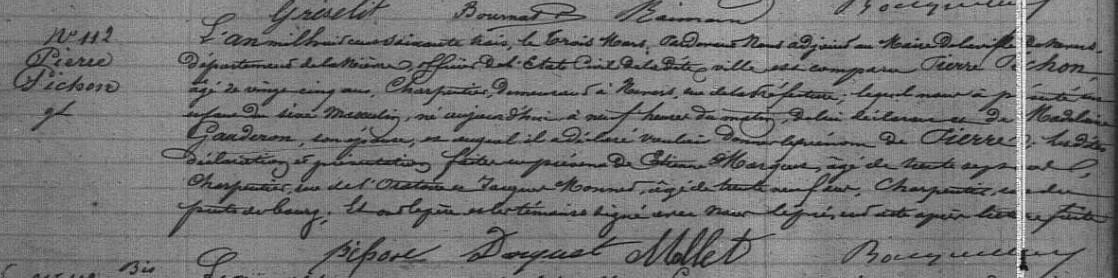 Greselit Bournat Raimon
N° 112
Pierre
Pichon
gf
L'an mil huit cent soixante trois, le trois Mars, Pardevant Nous adjoint au Maire de la ville de Nevers,
département de la Nièvre, officier de l'Etat Civil de la dite ville est comparu Pierre Pichon,
âgé de vingt cinq ans, Charpentier, demeurant à Nevers, rue de la Préfecture, lequel nous a présenté un
enfant du sexe Masculin, né aujourd'hui à neuf heures du matin, de lui déclarant et de Madelaine
Gauderon, son épouse, et auquel il a déclaré vouloir donner le prénom de Pierre, les dites
déclaration et présentation faites en présence de Etienne Marquet, âgé de trente sept ans,
Charpentier, rue de l'Oratoire et Jacques Monnet, âgé de trente neuf ans, Charpentier, rue du
puits du bourg. Et ont le père et les témoins signé avec Nous le présent acte après lecture faite
Mollet
Bis